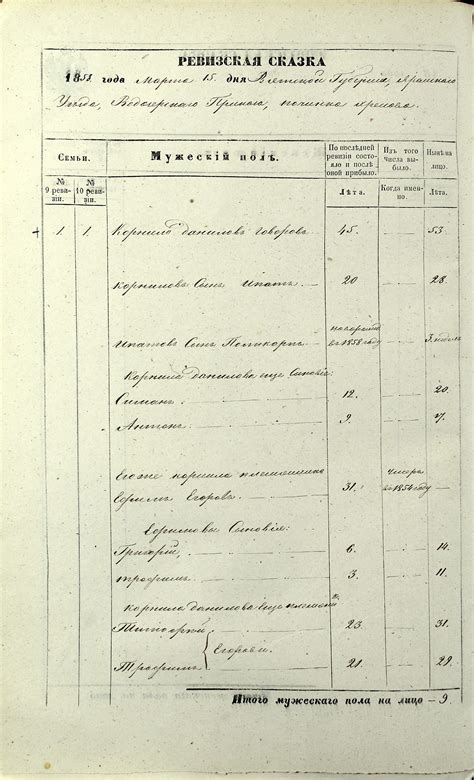 РЕВИЗСКАЯ СКАЗКА
1858 года Марта 15 дня Вятской Губерніи, Яранскаго
Уѣзда, Водозерскаго Приказа, починка
Семьи.
Мужескій полъ.
По послѣдней ревизіи состояло и послѣ оной прибыло.
Изъ того числа выбыло.
Нынѣ на лицо.
№ 9 ревизіи.
№ 10 ревизіи.
Лѣта.
Когда именно.
Лѣта.
1 1 Корнило Даниловъ Говоровъ 45. 53.
Корниловъ Сынъ Ипатъ 20 28.
Ипатовъ Сынъ Поликарпъ въ 1858 году 3. недѣл
Корнила Данилова еще Сыновія:
Симанъ 12. 20.
Антонъ 9. 17.
Его же Корнила племянникъ
Ефимъ Егоровъ 31. въ 1854 году
Ефимовы Сыновія:
Григорій, 6. 14.
Трофимъ 3. 11.
Корнила Данилова еще племян
23. 31.
Егоровы.
Трофимъ 21. 29.
Итого мужескаго пола на лицо – 9.